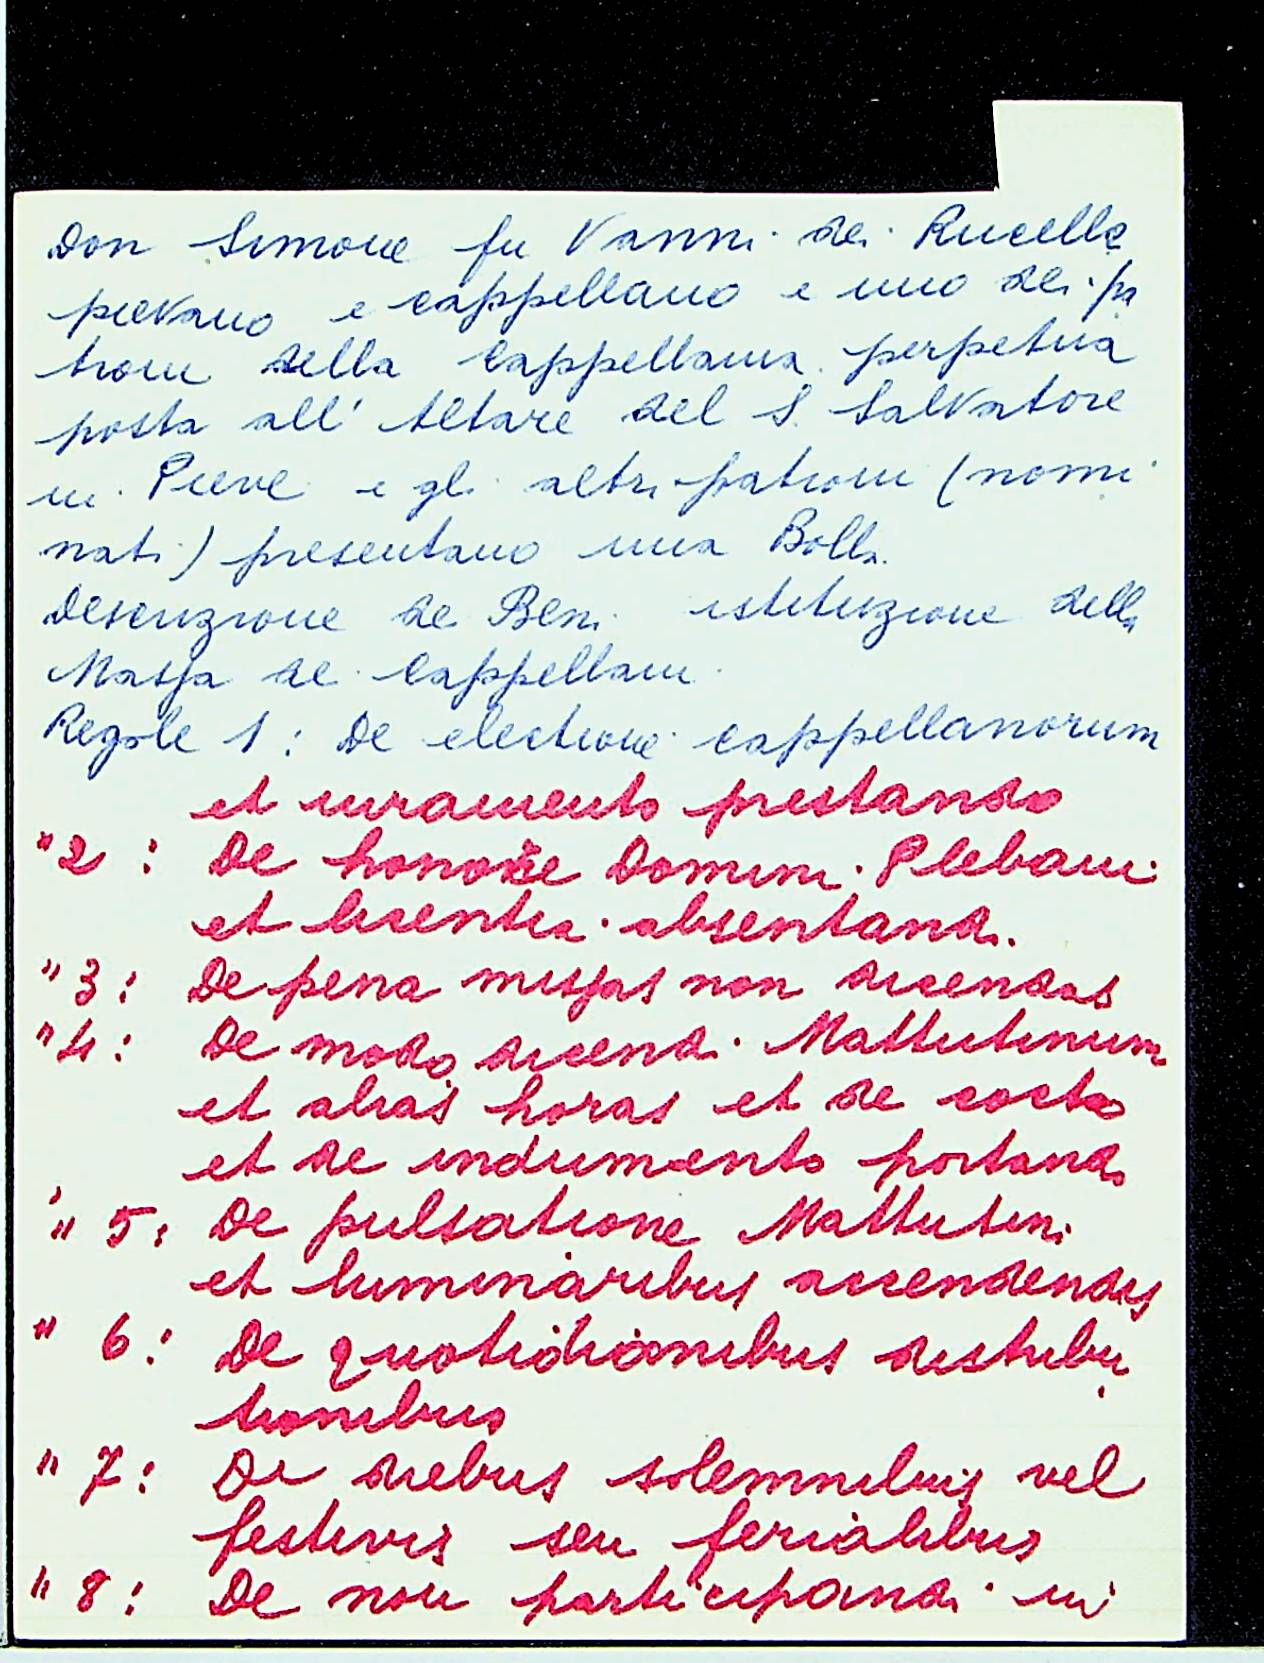 Don Simone fu Vanni dei Rucella
pievano e cappellano e uno dei pa
troni della Cappellania perpetua
posta all' Altare del S. Salvatore
in Pieve e gli altri patroni (nomi
nati) presentano una Bolla.
Descrizione de Beni istituzione della
Massa de Cappellani
Regole 1: De electione cappellanorum
et iuramento prestando
" 2: De honore Domini Plebani
et licentia absentandi.
" 3: De pena missas non dicendas
" 4: De modo dicendi Mattutinum
et alias horas et de cocto
et de indumento portandi
" 5: De pulsatione Mattutini
et luminaribus accendendis
" 6: De quotidianibus distribu
tionibus
" 7: De diebus solemnibus vel
festivis seu ferialibus
" 8: De non participandi in